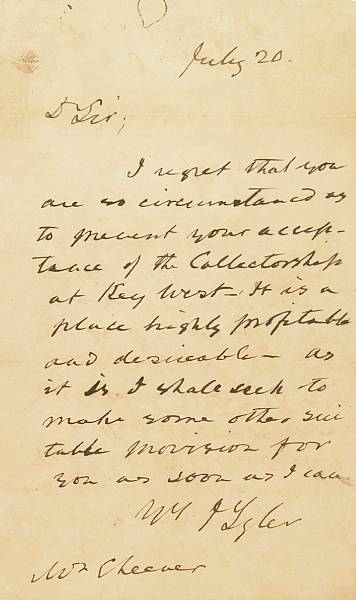 July 20.
D Sir;
I regret that you
are so circumstanced as
to prevent your accep-
tance of the Collectorship
at Key West - It is a
place highly profitable
and desireable - as
it is I shall seek to
make some other sui
table provision for
you as soon as I can
J Tyler
Cheever